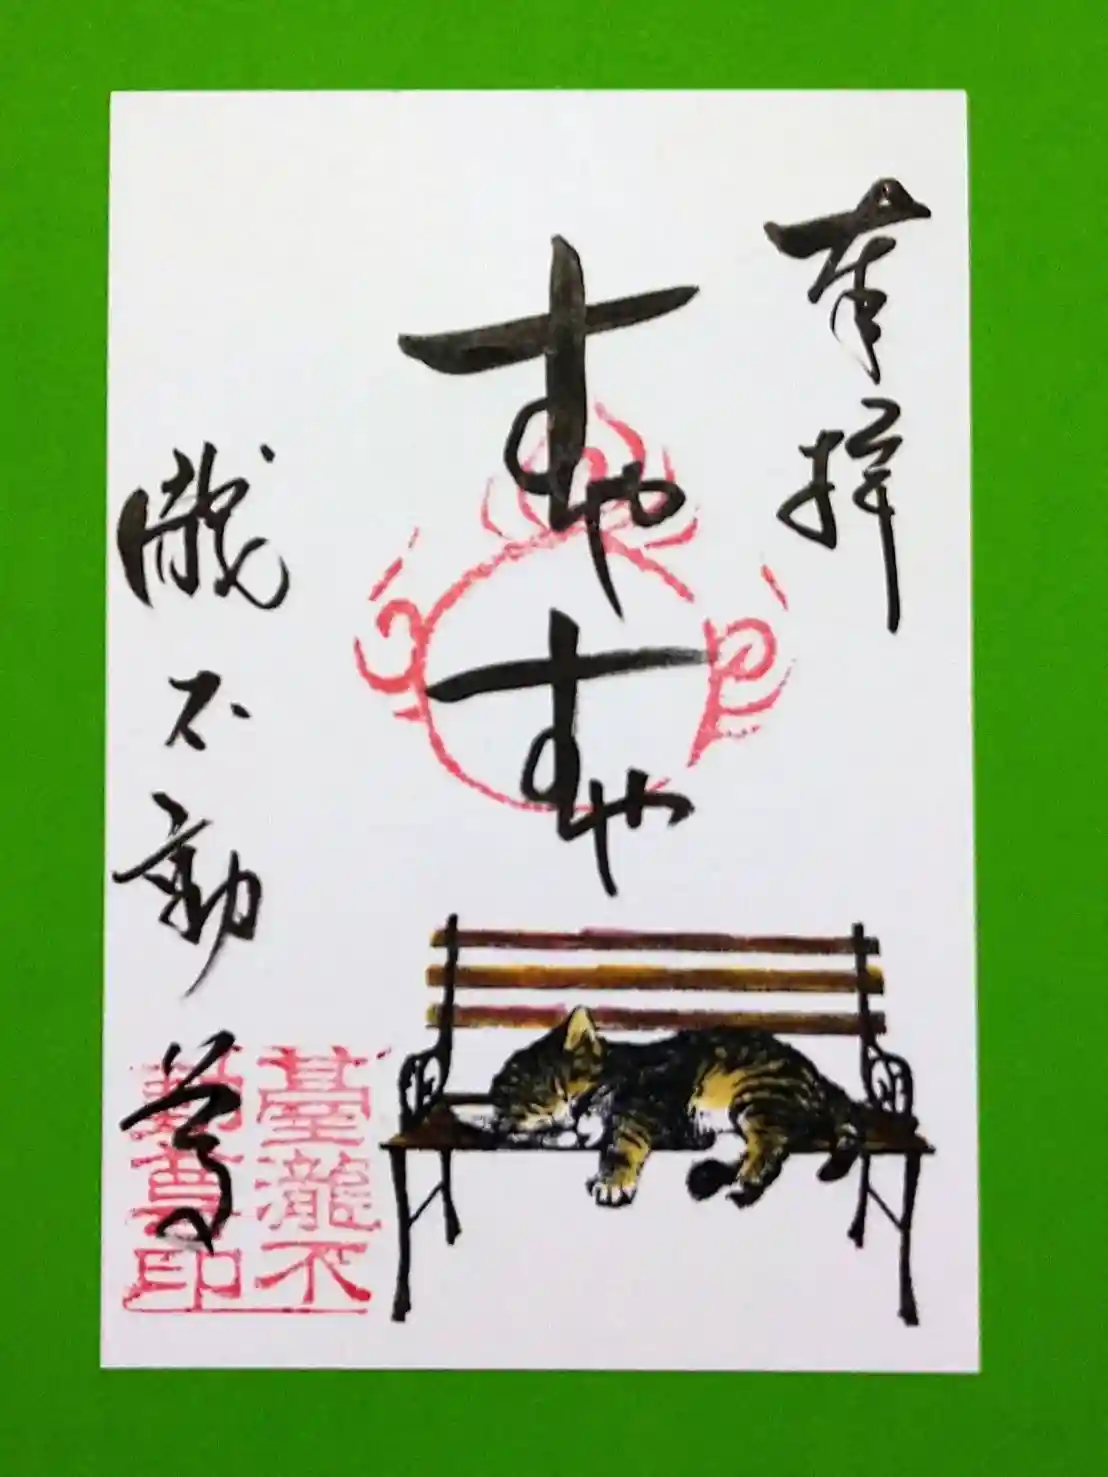 奉拝
すや
すや
瀧不動尊
臺瀧不
動尊印